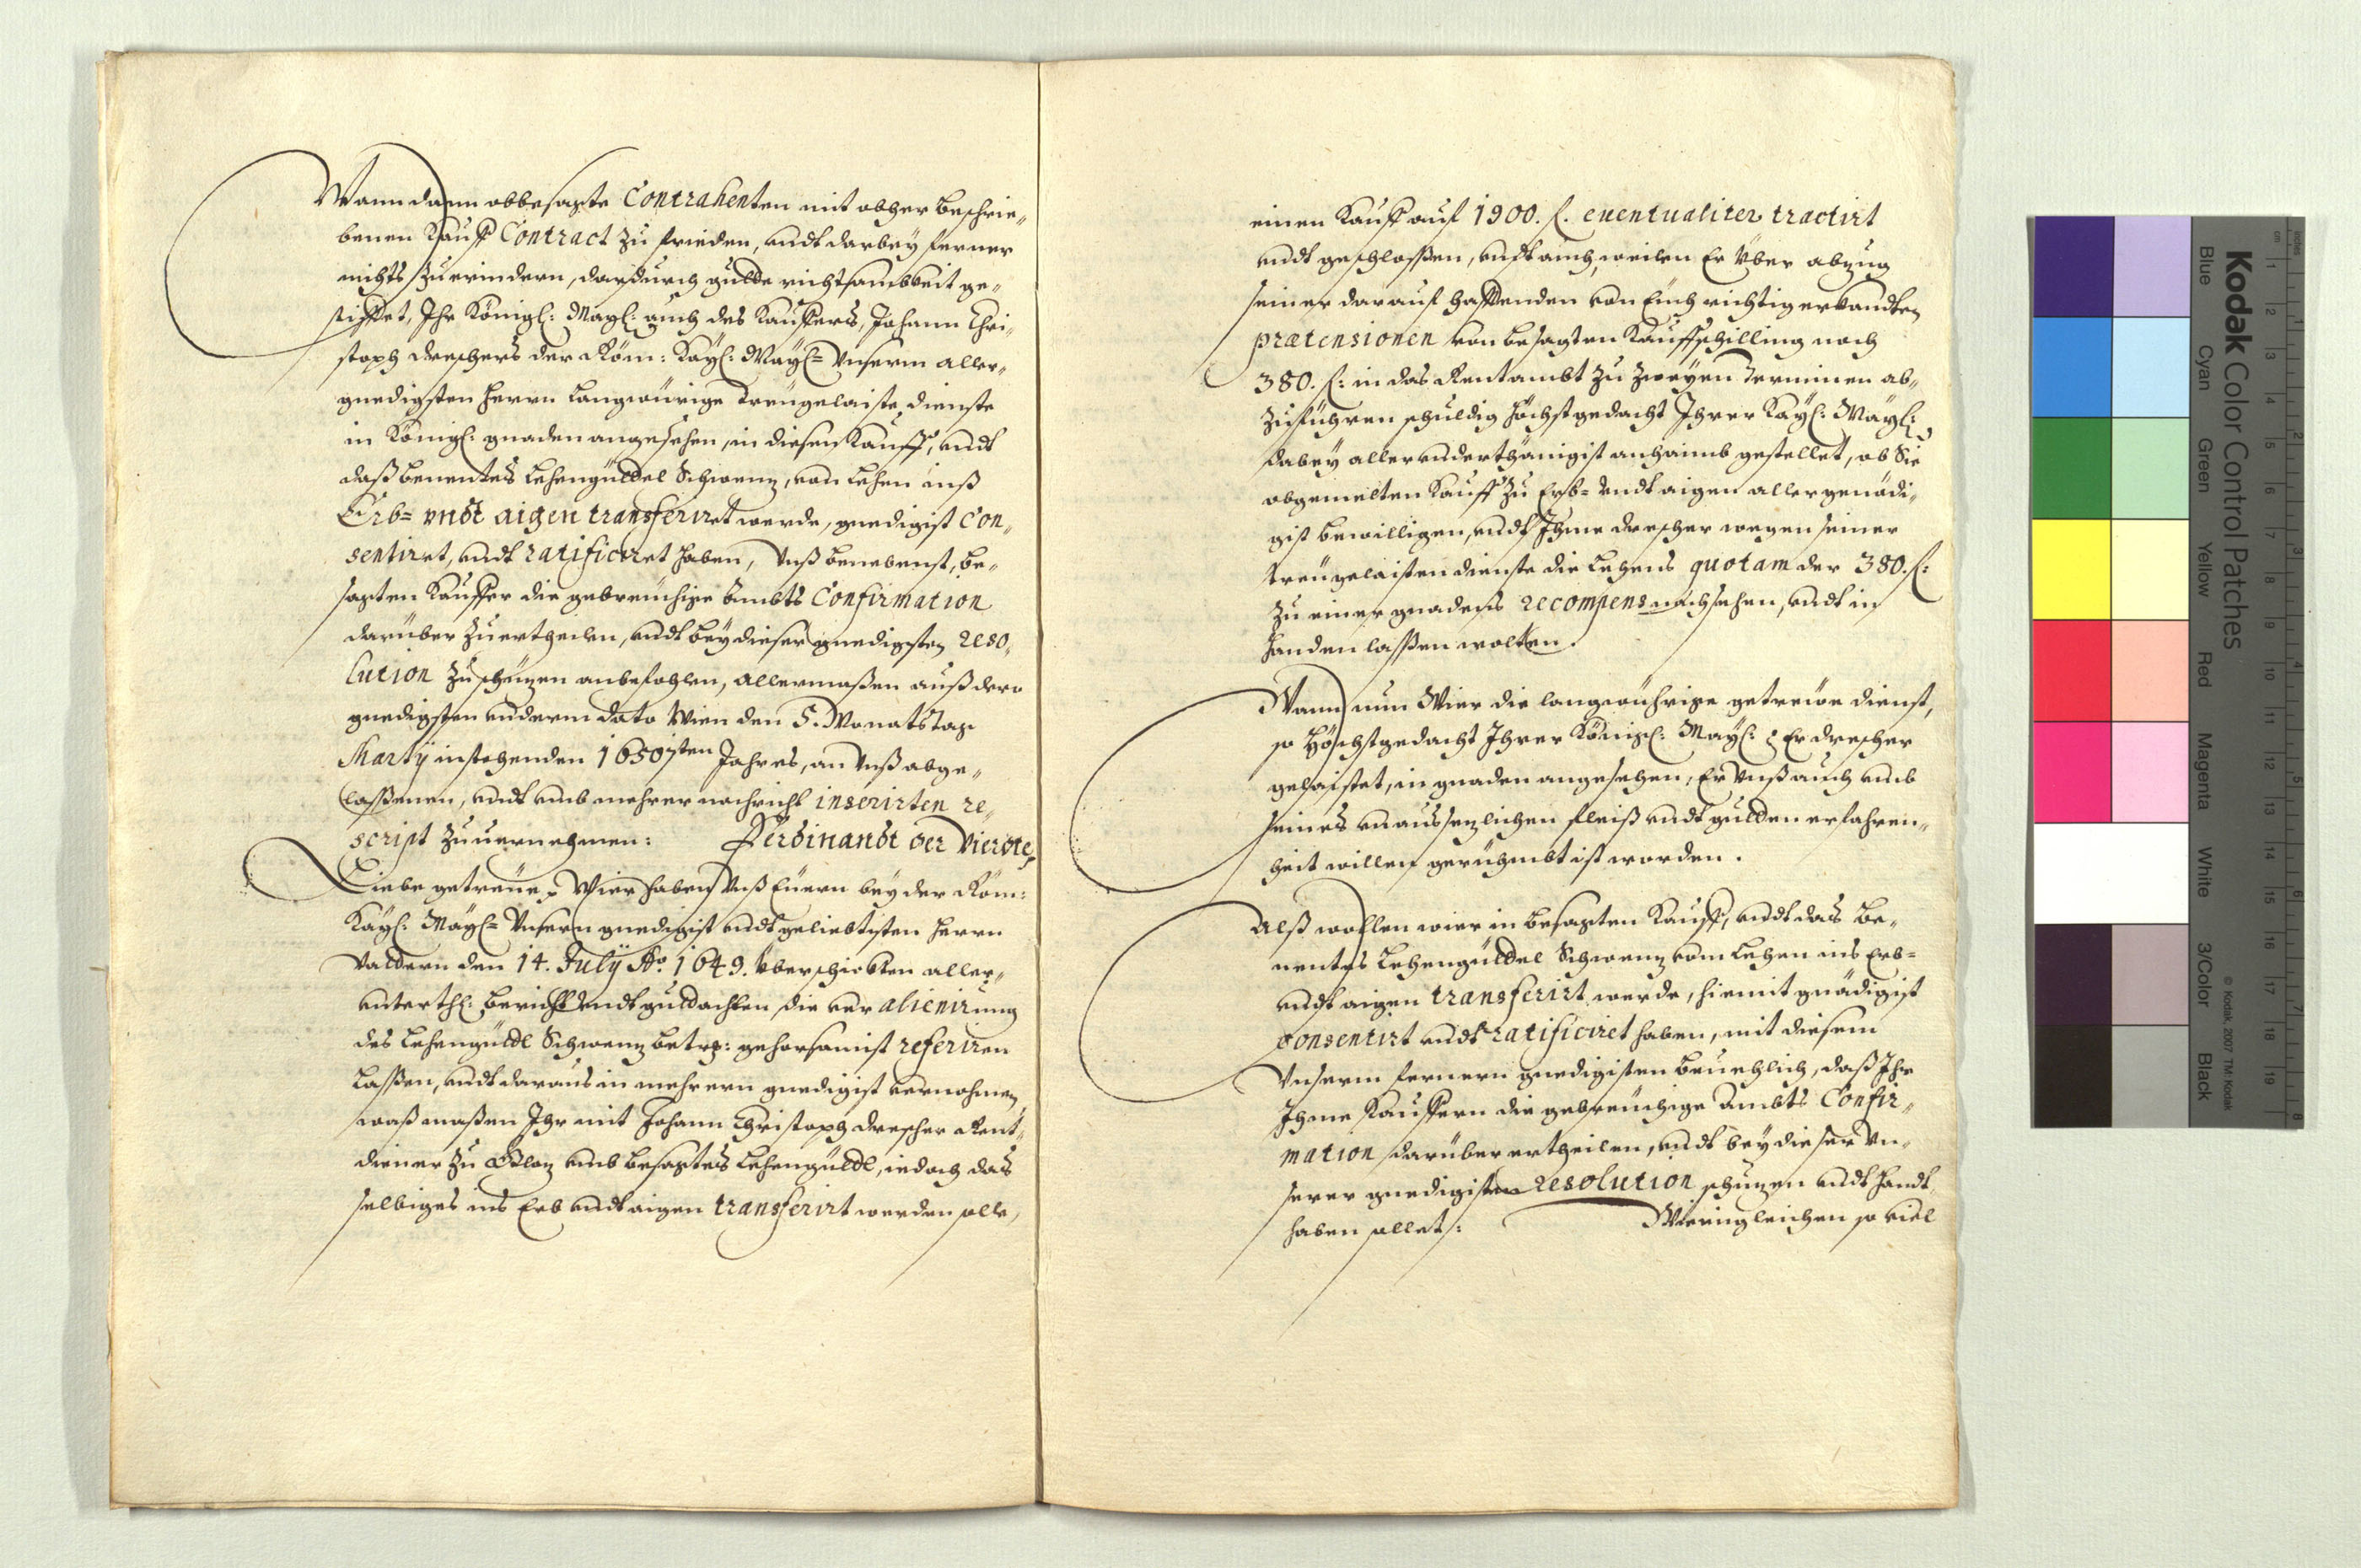 Wann dann obbesagte Contrahenten mit obger beschrie-
benen Kauff Contract zu frieden, undt darbey ferner
nichts zu erindern, dardurch guldte richtsambkeit ge-
stifftet, Ihr Königl: Mayl: auch des Kauffers, Johann Chri-
stoph Dreschers der Röm: Kayl: Mayl= Unserm aller-
gnedigsten Herrn langwürige treugelaiste dienste
in Königl: gnaden angesehen, in diesen Kauff, undt
daß benentes Lehengüldel Schwenz, von Lehen inß
Erb= vndt aigen transferiret werde, gnedigist con-
sentiret, undt ratificiret haben, Unß benebenst, be-
sagten Kauffer die gebreuchige Ambts Confirmation
darüber zu ertheilen, undt bey dieser gnedigsten reso-
lution zu schützen anbefohlen, allermaßen auß dero
gnedigsten underm dato Wien den 5. Monatstag
Martÿ instehenden 1650isten Jahres, an Unß abge-
lassenen, undt umb mehrer nachricht inserirten re-
script zu uernehmen: Ferdinandt der Vierdte,
Liebe getreue, Wier haben Unß Euern bey der Röm:
Kayl: Mayl= Unsern gnedigist undt geliebtisten Herrn
Vattern den 14. Julÿ Ao. 1649. überschickten aller-
unterthl: bericht undt guttachten, die ver alienirung
des Lehengüldl Schwenz betrg: gehorsamist referiren
lassen, undt daraus in mehrern gnedigist vernohmen,
waß maßen Ihr mit Johann Christoph Drescher Rent-
diener zu Glatz umb besagtes Lehengüldl, iedoch das
selbiges ins Erb undt aigen transferirt werden solle,
einen Kauff auf 1900. f. euentualiter tractirt
undt geschlossen, undt auch, weilen Er über abzug
seiner darauf hafftenden von Euch richtig erkandten
prætensionen von besagten Kauffschilling noch
380. f: in das Rentambt zu zweyen Terminen ab-
zuführen schuldig höchstgedacht Ihrer Kayl: Mayl:
dabey allerunderthänigist anhaimb gestellet, ob Sie
obgemelten Kauff zu Erb= undt aigen allergenädi-
gist bewilligen, undt Ihme Drescher wegen seiner
treugelaisten dienste die Lehens quotam der 380. f:
zu einer gnadens recompens nachsehen, undt in
handen lassen wolten.
Wann nun Wier die langwührige getrewe dienst,
so Höchstgedacht Ihrer Königl: Mayl: Er Drescher
gelaistet, in gnaden angesehen, Er Unß auch umb
seines unaussetzlichen fleiß undt gulden erfahren-
heit willen gerühmbt ist worden.
Alß wollen wier in besagten Kauff, undt das be-
nentes Lehengüldel Schwenz vom Lehen ins Erb=
undt aigen transferirt werde, hiemit gnädigist
consentirt undt ratificiret haben, mit diesem
Unserm fernern gnedigisten beuehlich, daß Ihr
Ihme Kauffern die gebreuchige Ambts Confir-
mation darüber ertheilen, undt bey dieser Un-
serer gnedigisten resolution schutzen undt handt
haben sollet: Wieringleichen so viel
Kodak Color Control Patches
Blue Cyan Green Yellow Red Magenta White 3/Color Black
© Kodak, 2007 TM: Kodak